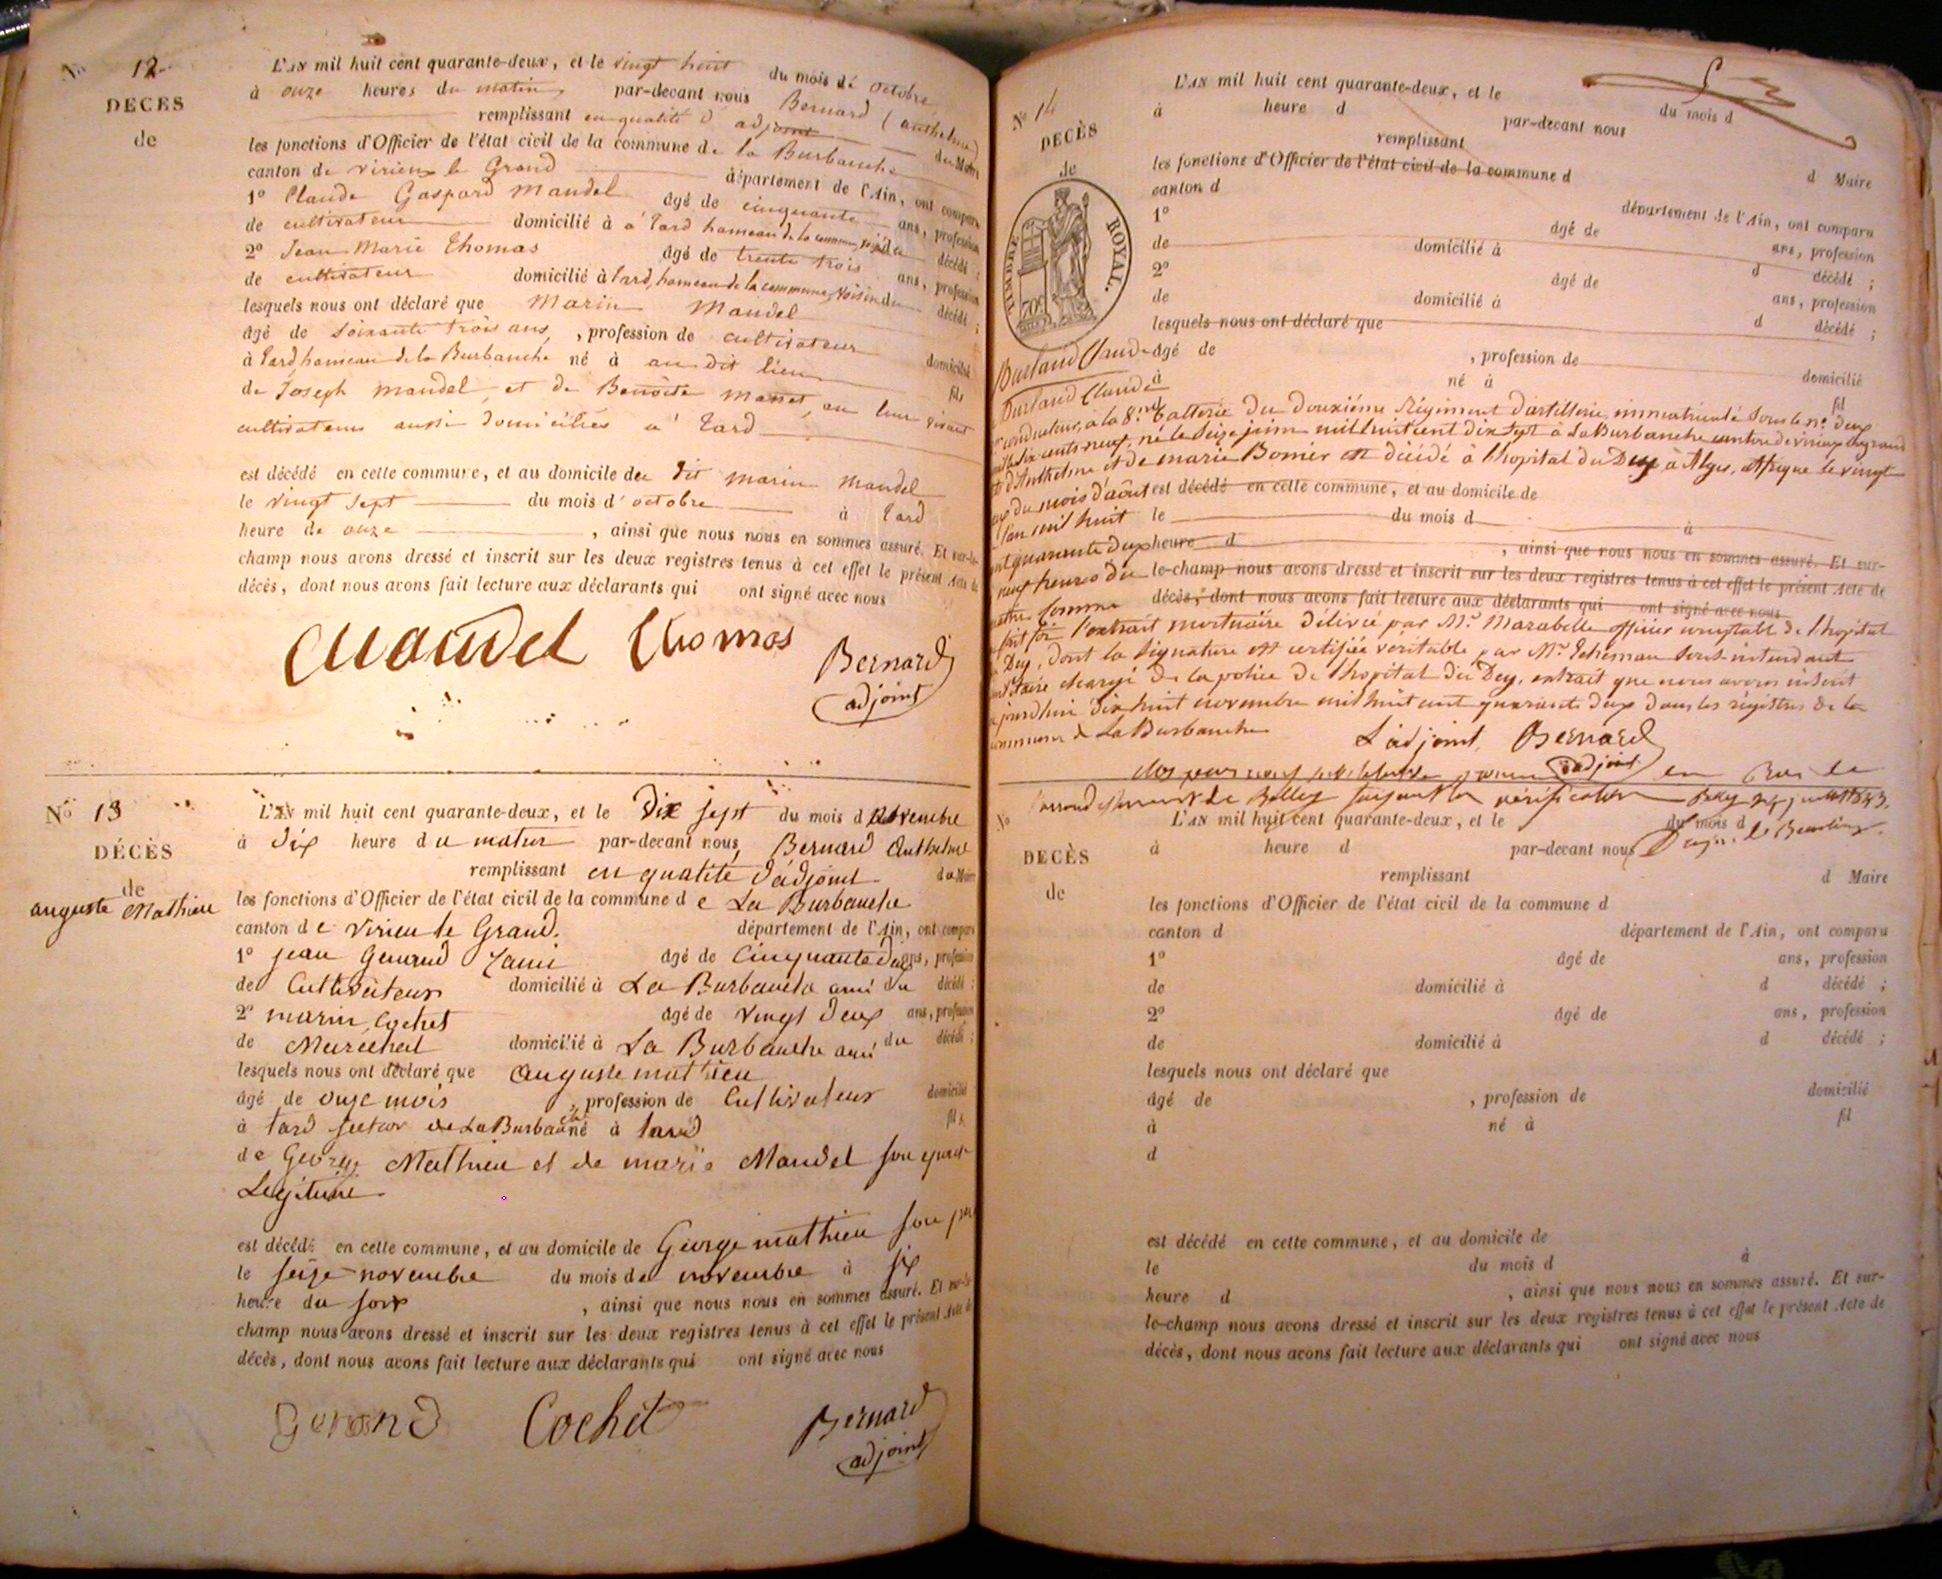 No. 12
DECES
de
L'AN mil huit cent quarante-deux, et le vingt huit du mois de octobre
à onze heures du matin, par-devant nous Bernard (anthelme)
remplissant en qualité d'adjoint du Maire
les fonctions d'Officier de l'état civil de la commune de la Burbanche
canton de virieu le Grand département de l'Ain, ont comparu
1º Claude Gaspard Mandel âgé de cinquante ans, profession
de cultivateur domicilié à à tard hameau de la commune, décédé ;
2º Jean Marie Thomas âgé de trente trois ans, profession
de cultivateur domicilié à tard, hameau de la commune, voisin du décédé ;
lesquels nous ont déclaré que Marin Mandel
âgé de soixante trois ans, , profession de cultivateur domicilié
à tard hameau de la Burbanche né à au dit lieu fils
de Joseph mandel, et de Benoite, en leur vivant
cultivateurs aussi domiciliés à tard
est décédé en cette commune, et au domicile de dit marin mandel
le vingt sept du mois d'octobre à tard
heure de onze , ainsi que nous nous en sommes assuré. Et sur-le-
champ nous avons dressé et inscrit sur les deux registres tenus à cet effet le présent Acte de
décès, dont nous avons fait lecture aux déclarants qui ont signé avec nous
Mandel Thomas Bernard
adjoint
No 13
DÉCÈS
de
auguste Mathieu
L'AN mil huit cent quarante-deux, et le Dix sept du mois d novembre
à dix heure du matin par-devant nous, Bernard Anthelme
remplissant en qualité d'adjoint du Maire
les fonctions d'Officier de l'état civil de la commune de La Burbanche
canton de Virieu le Grand. département de l'Ain, ont comparu
1º jean âgé de Cinquante deux ans, profession
de Cultivateur domicilié à La Burbanche ami du décédé ;
2º marin Cochet âgé de vingt deux ans, profession
de Marechal domicilié à La Burbanche ami du décédé ;
lesquels nous ont déclaré que auguste mathieu
âgé de onze mois , profession de Cultivateur domicilié
à tard section de La Burbanche né à tard fils
de George Mathieu et de marie Mandel son epouse
Legitime
est décédé en cette commune, et au domicile de George mathieu son père
le seize novembre du mois de novembre à six
heure du soir , ainsi que nous nous en sommes assuré. Et sur-le-
champ nous avons dressé et inscrit sur les deux registres tenus à cet effet le présent Acte de
décès, dont nous avons fait lecture aux déclarants qui ont signé avec nous
Gerand Cochet Bernard
adjoint
No 14
DÉCÈS
de
TIMBRE ROYAL.
70c
Burtaud Claude
L'AN mil huit cent quarante-deux, et le du mois d
à heure d par-devant nous
remplissant d Maire
les fonctions d'Officier de l'état civil de la commune d
canton d département de l'Ain, ont comparu
1º âgé de ans, profession
de domicilié à d décédé ;
2º âgé de ans, profession
de domicilié à d décédé ;
lesquels nous ont déclaré que
âgé de , profession de domicilié
à né à fil
Burtaud Claude
conducteur, à la 8me batterie du douxiéme Régiment d'artillerie, immatriculé sous le no. deux
mille six cents neuf, né le seize juin mil huit cent dix sept à La Burbanche canton de virieux le grand
d'Anthelme et de marie Bonier est décédé à l'hopital du Dey à Alger, Afrique le vingt
du mois d'août est décédé en cette commune, et au domicile de
l'an mil huit le du mois d à
cent quarante deux heure d , ainsi que nous nous en sommes assuré. Et sur-
neuf heures du le-champ nous avons dressé et inscrit sur les deux registres tenus à cet effet le présent Acte de
matin Comme décès, dont nous avons fait lecture aux déclarants qui ont signé avec nous
fait foi l'extrait mortuaire délivré par Mr. Marabelle officier comptable de l'hopital
du Dey, dont la signature est certifiée véritable par Mr. sous-intendant
militaire chargé de la police de l'hopital du Dey, extrait que nous avons inscrit
aujourd'hui dix huit novembre mil huit cent quarante deux dans les régistres de la
commune de La Burbanche
L'adjoint, Bernard
adjoint
l'arrondissement de Belley vérification
No
DECÈS
de
L'AN mil huit cent quarante-deux, et le du mois d
à heure d par-devant nous
remplissant d Maire
les fonctions d'Officier de l'état civil de la commune d
canton d département de l'Ain, ont comparu
1º âgé de ans, profession
de domicilié à d décédé ;
2º âgé de ans, profession
de domicilié à d décédé ;
lesquels nous ont déclaré que
âgé de , profession de domicilié
à né à fil
d
est décédé en cette commune, et au domicile de
le du mois d à
heure d , ainsi que nous nous en sommes assuré. Et sur-
le-champ nous avons dressé et inscrit sur les deux registres tenus à cet effet le présent Acte de
décès, dont nous avons fait lecture aux déclarants qui ont signé avec nous